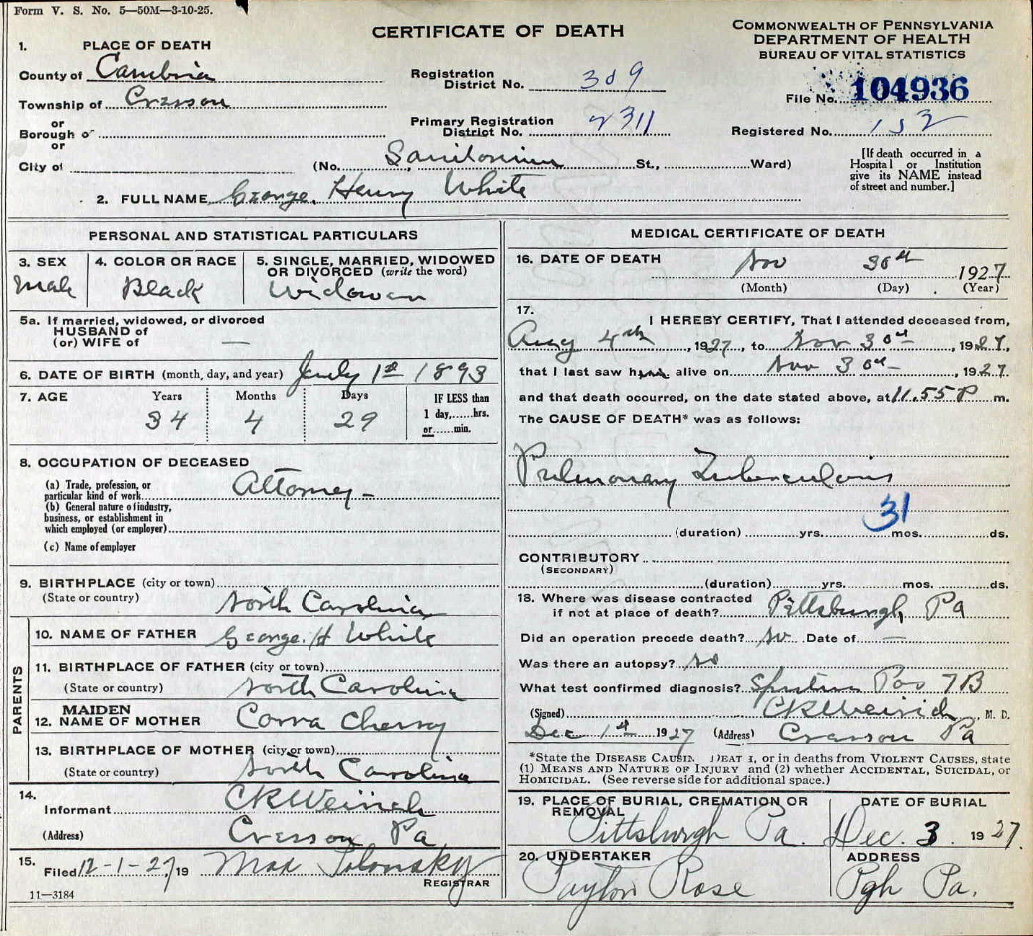 Form V. S. No. 5—50M—3-10-25.
CERTIFICATE OF DEATH
COMMONWEALTH OF PENNSYLVANIA
DEPARTMENT OF HEALTH
BUREAU OF VITAL STATISTICS
1. PLACE OF DEATH
County of Cambria
Registration District No. 309
File No. 104936
Township of Cresson
or
Borough of
Primary Registration District No. 2311
Registered No. 152
or
City of
(No. Sanitorium St., Ward)
[If death occurred in a Hospital or Institution give its NAME instead of street and number.]
2. FULL NAME George Henry White
PERSONAL AND STATISTICAL PARTICULARS
3. SEX Male
4. COLOR OR RACE Black
5. SINGLE, MARRIED, WIDOWED OR DIVORCED (write the word) Widower
5a. If married, widowed, or divorced
HUSBAND of
(or) WIFE of —
6. DATE OF BIRTH (month, day, and year) July 1st 1893
7. AGE Years Months Days IF LESS than
34 4 29 1 day,......hrs.
or......min.
8. OCCUPATION OF DECEASED
(a) Trade, profession, or particular kind of work Attorney -
(b) General nature of industry, business, or establishment in which employed (or employer)
(c) Name of employer
9. BIRTHPLACE (city or town)
(State or country) North Carolina
PARENTS
10. NAME OF FATHER George H White
11. BIRTHPLACE OF FATHER (city or town)
(State or country) North Carolina
12. MAIDEN NAME OF MOTHER Corra Cherry
13. BIRTHPLACE OF MOTHER (city or town)
(State or country) North Carolina
14. Informant CR Weirich
(Address) Cresson Pa
15. Filed 12-1-27, 19 Max
REGISTRAR
11—3184
MEDICAL CERTIFICATE OF DEATH
16. DATE OF DEATH Nov 30th 1927
(Month) (Day) (Year)
17. I HEREBY CERTIFY, That I attended deceased from,
Aug 4th, 1927, to Nov 30th, 1927,
that I last saw him alive on Nov 30th, 1927
and that death occurred, on the date stated above, at 11.55 P m.
The CAUSE OF DEATH* was as follows:
Pulmonary Tuberculosis
31
(duration) yrs. mos. ds.
CONTRIBUTORY
(SECONDARY)
(duration) yrs. mos. ds.
18. Where was disease contracted
if not at place of death? Pittsburgh, Pa
Did an operation precede death? No Date of —
Was there an autopsy? No
What test confirmed diagnosis? Sputum Pos TB
(Signed) CR Weirich, M. D.
Dec 1st 1927 (Address) Cresson Pa
*State the DISEASE CAUSING DEATH, or in deaths from VIOLENT CAUSES, state
(1) MEANS AND NATURE OF INJURY and (2) whether ACCIDENTAL, SUICIDAL, or
HOMICIDAL. (See reverse side for additional space.)
19. PLACE OF BURIAL, CREMATION OR REMOVAL
Pittsburgh Pa.
DATE OF BURIAL
Dec. 3 1927.
20. UNDERTAKER
Taylor Rose
ADDRESS
Pgh Pa.